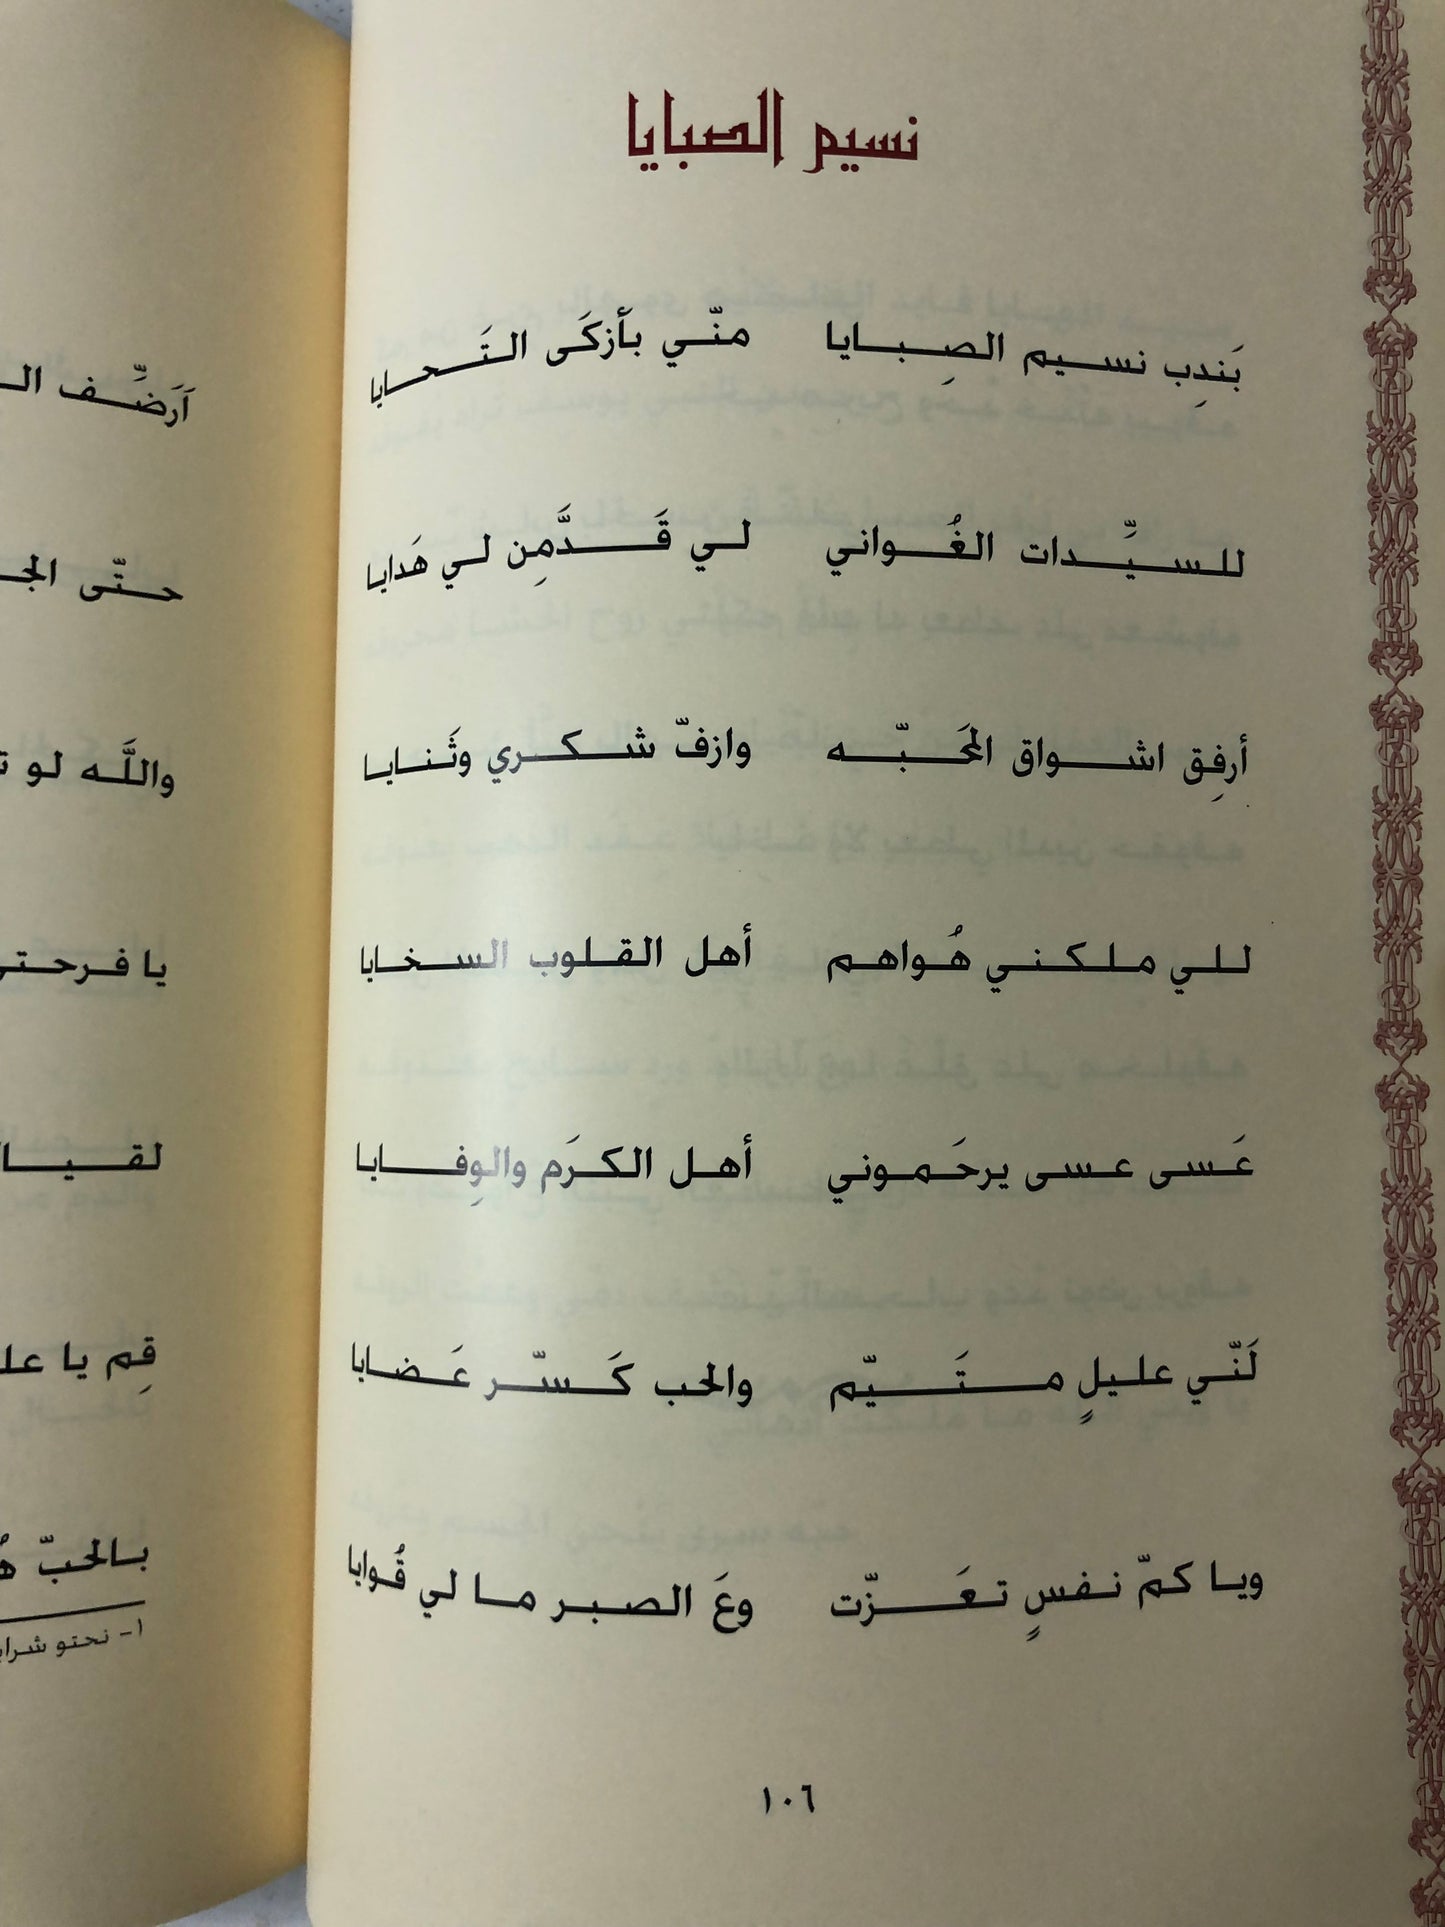 نسيم الصبايا
بَندِب نسيم الصِبايا منّي بأزكَى التَحايا
للسيِّدات الغُواني لي قَدَّمِن لي هَدايا
أرفِق اشواق المَحَبّه وازفّ شكري وثَنايا
للي ملكني هُواهم أهل القلوب السخايا
عَسى عسى يرحَموني أهل الكرَم والوِفايا
لَنّي عليلٍ متَيّم والحب كَسّر عَضايا
ويا كمّ نفسٍ تعَزّت وعَ الصبر ما لي قُوايا
١٠٦
آرَضِّف الـ
حتّى الجـ
واللَّه لو
يا فرحتي
لقيا
قِم يا علـ
بالحبّ هُـ
١- نحتو شراب